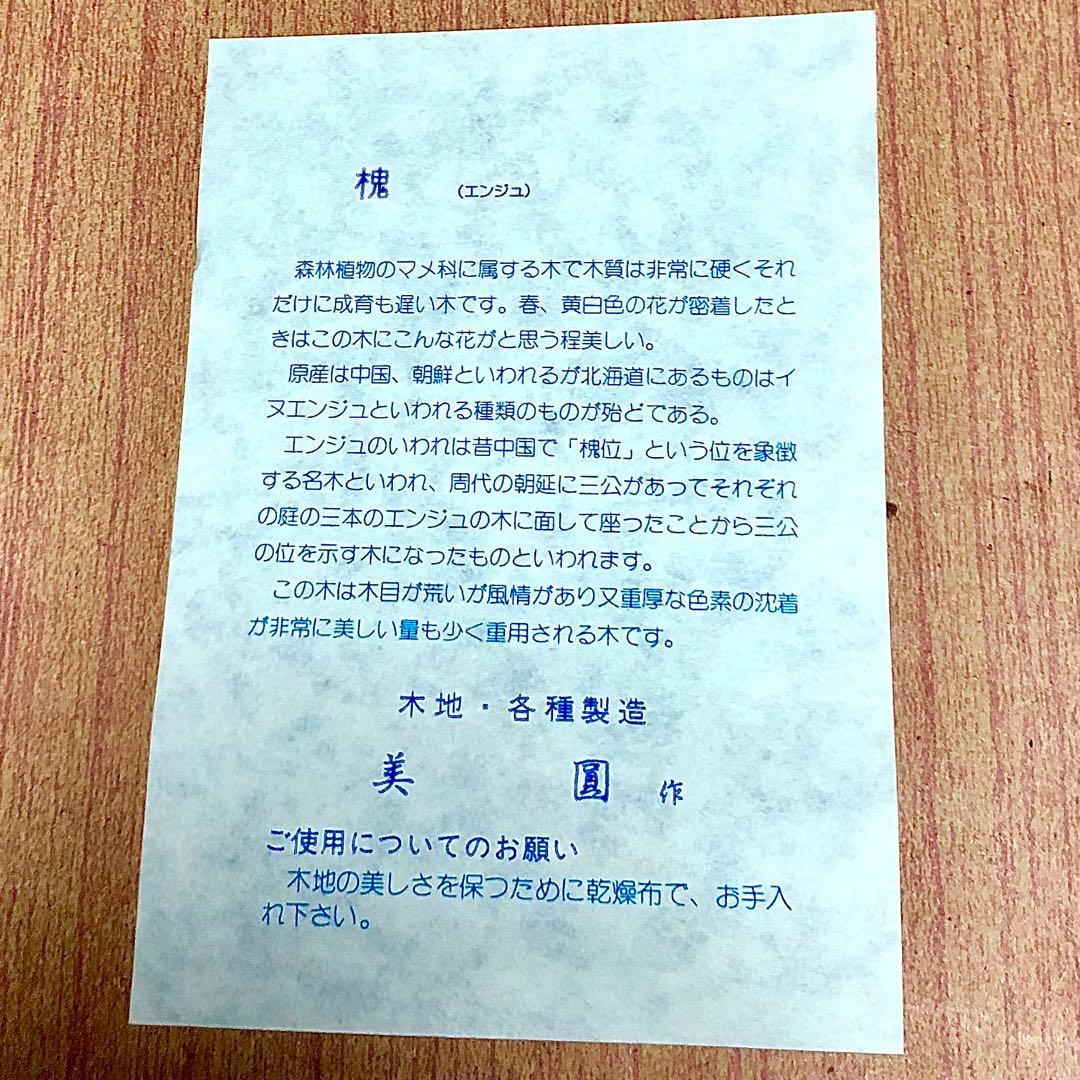 槐 (エンジュ)
森林植物のマメ科に属する木で木質は非常に硬くそれ
だけに成育も遅い木です。春、黄白色の花が密着したと
きはこの木にこんな花がと思う程美しい。
原産は中国、朝鮮といわれるが北海道にあるものはイ
ヌエンジュといわれる種類のものが殆どである。
エンジュのいわれは昔中国で「槐位」という位を象徴
する名木といわれ、周代の朝延に三公があってそれぞれ
の庭の三本のエンジュの木に面して座ったことから三公
の位を示す木になったものといわれます。
この木は木目が荒いが風情があり又重厚な色素の沈着
が非常に美しい量も少く重用される木です。
木地・各種製造
美圓作
ご使用についてのお願い
木地の美しさを保つために乾燥布で、お手入
れ下さい。